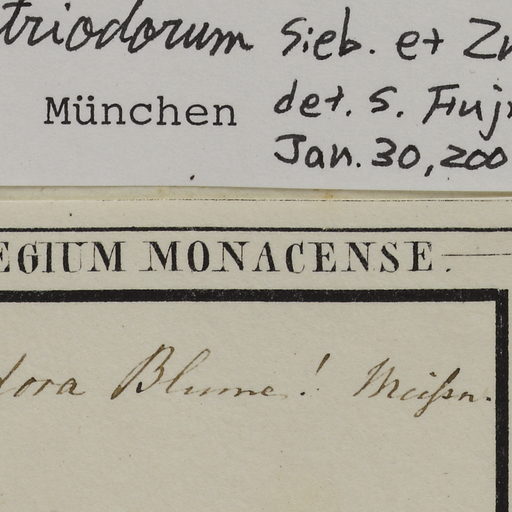 triodorum Sieb. et Zu
München det. S. Fuj
Jan. 30, 200
EGIUM MONACENSE.
dora Blume! Meissn.